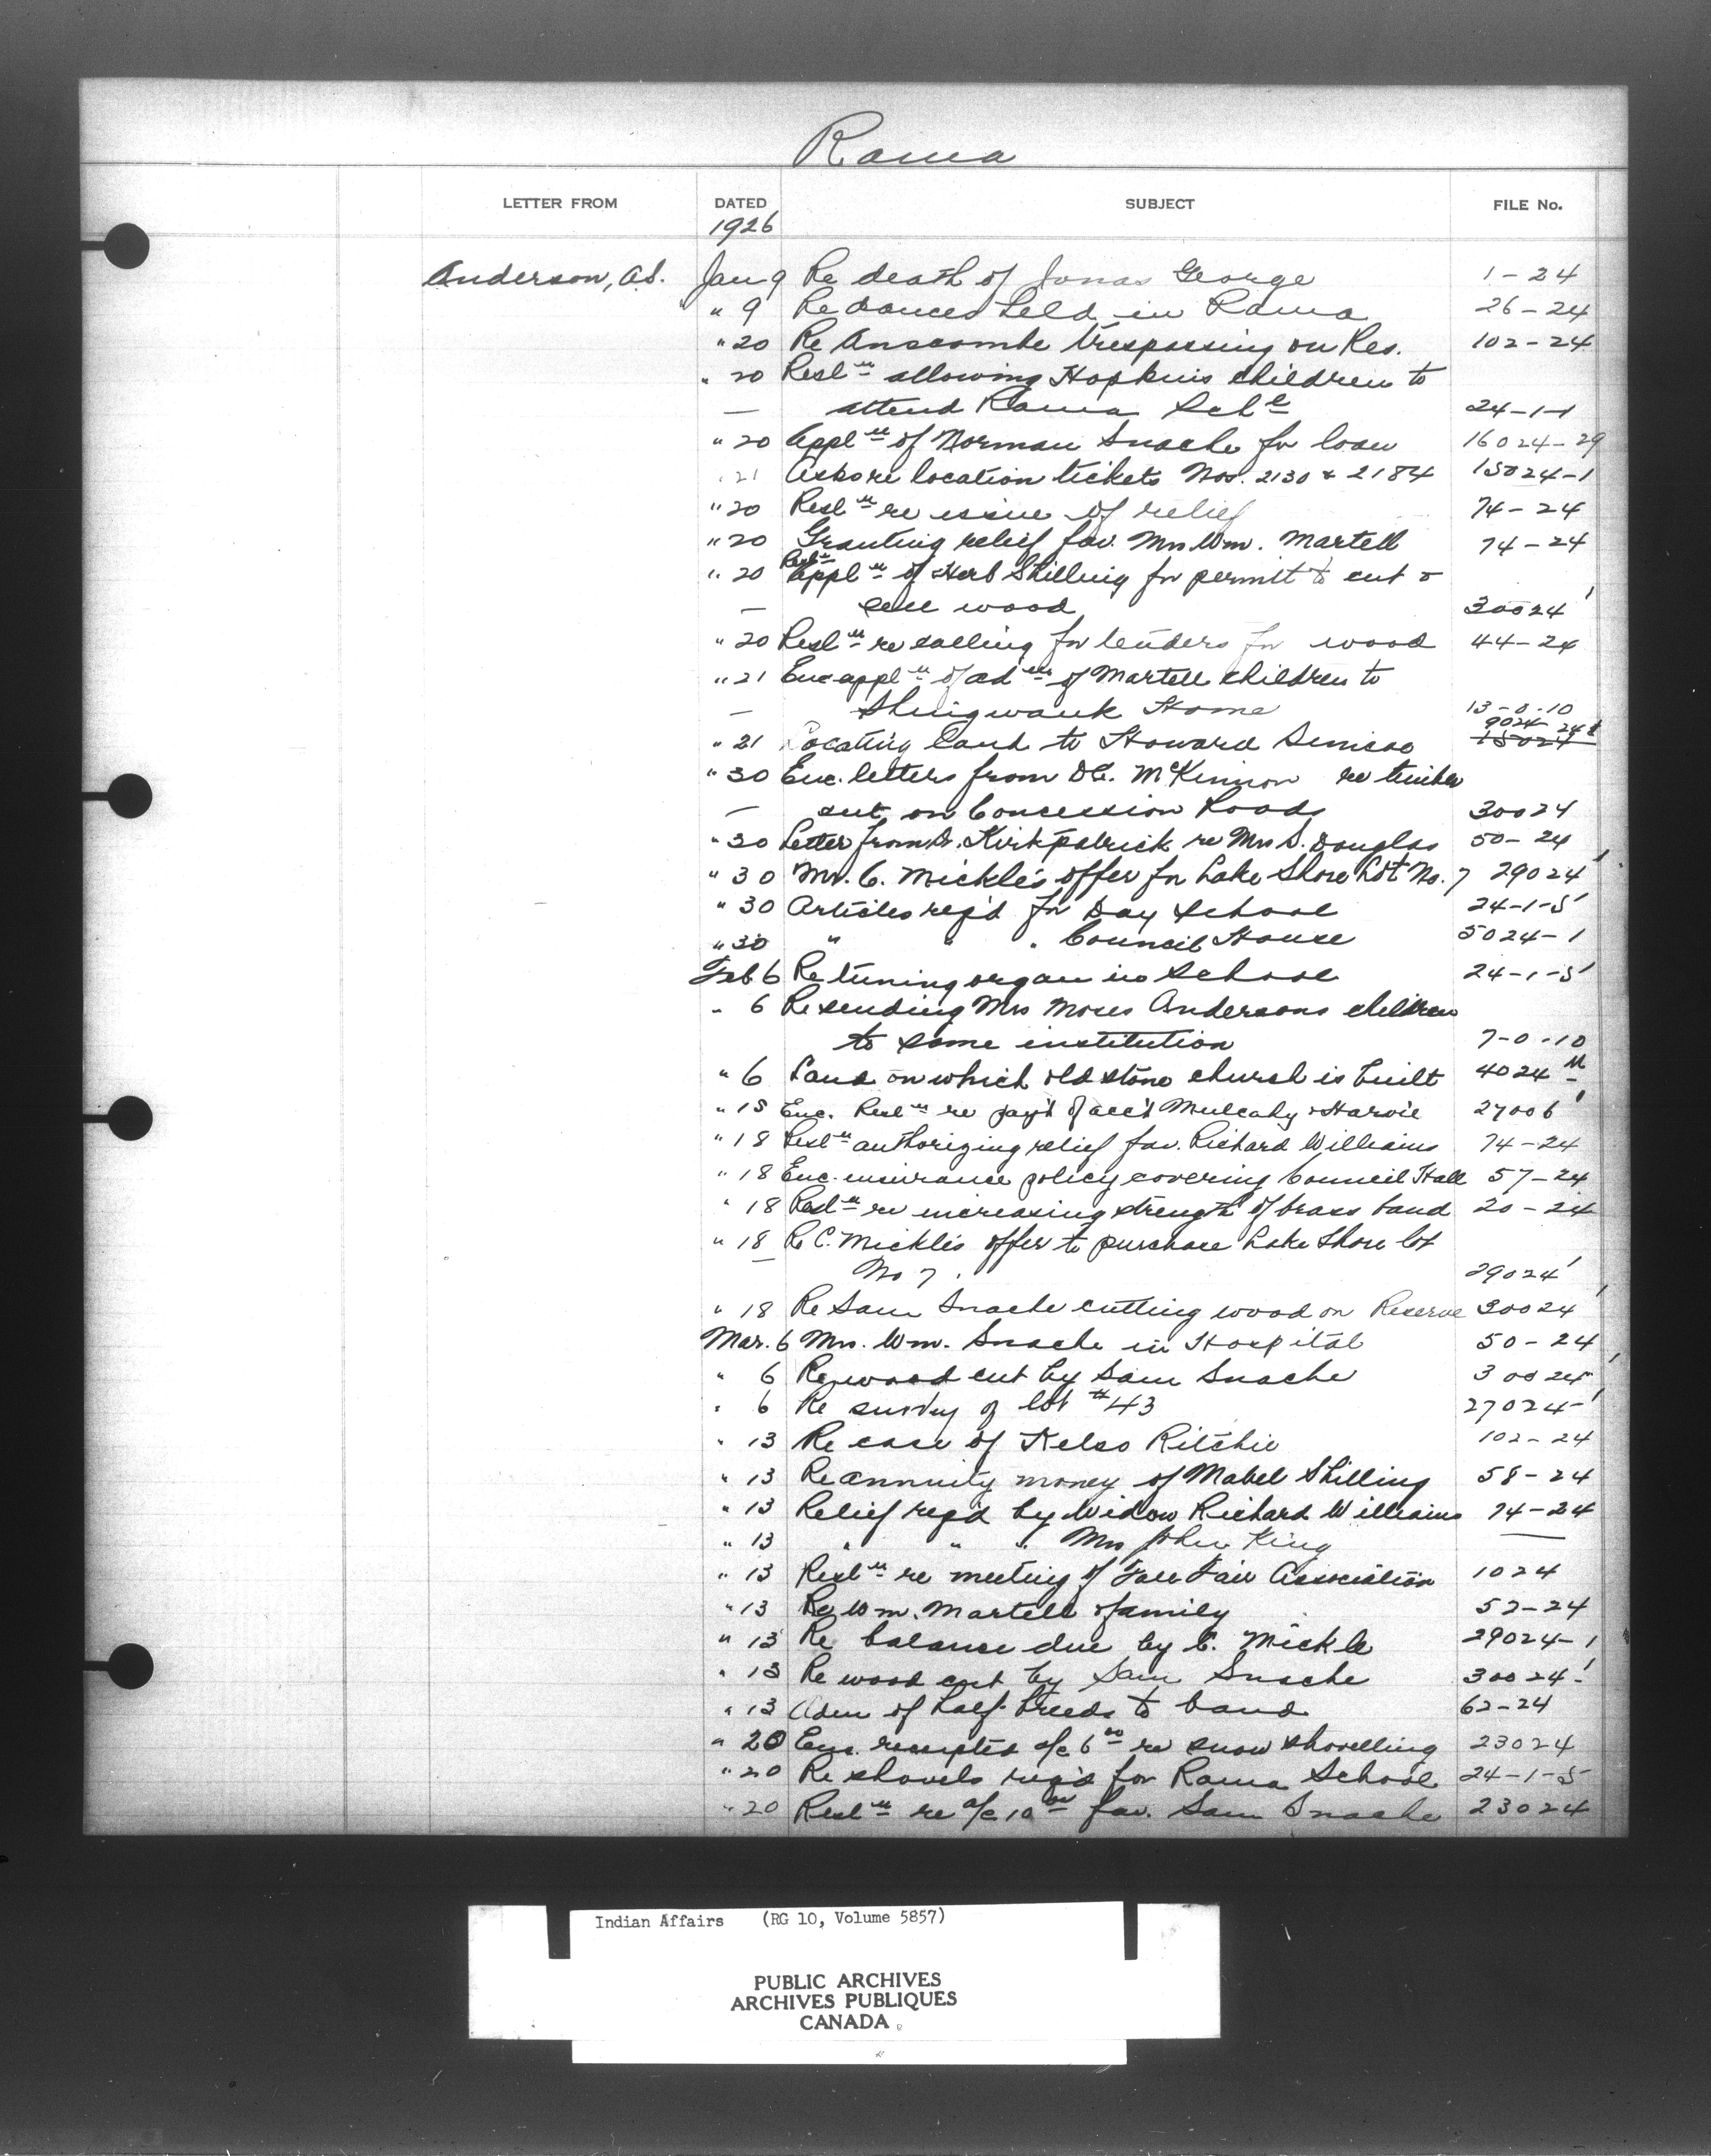 Rama
LETTER FROM DATED SUBJECT FILE No.
1926
Anderson, A.S. Jan 9 Re death of Jonas George 1-24
" 9 Re dances held in Rama 26-24
" 20 Re Anscombe trespassing on Res. 102-24
" 20 Resln allowing Hopkins children to
— attend Rama Schl 24-1-1
" 20 Appln of Norman Snache for loan 16024-29
" 21 Asks re location tickets Nos. 2130 & 2184 15024-1
" 20 Resln re issue of relief 74-24
" 20 Granting relief fav. Mrs Wm. Martell 74-24
" 20 Resln Appln of Herb Shilling for permit to cut &
— sell wood 30024-1
" 20 Resln re calling for tenders for wood 44-24
" 21 Enc appln of adm of Martell children to
— Shingwauk Home 13-0-10
" 21 Locating land to Howard Simcoe 15024 9024-24
" 30 Enc. letters from McKinnon re timber
— cut on Concession Roads 30024
" 30 Letter from Dr. Kirkpatrick re Mrs S. Douglas 50-24
" 30 Mr. C. Mickle's offer for Lake Shore Lot No. 7 29024-1
" 30 Articles reqd for Day School 24-1-5
" 30 " " " Council House 5024-1
Feb 6 Re tuning organ in School 24-1-5
" 6 Re sending Mrs Moses Andersons children
to some institution 7-0-10
" 6 Land on which old stone church is built 4024
" 15 Enc. Resln re pay't of acc't Mulcahy & Harvie 27006-1
" 18 Resln authorizing relief fav. Richard Williams 74-24
" 18 Enc. insurance policy covering Council Hall 57-24
" 18 Resln re increasing strength of brass band 20-24
" 18 Re C. Mickle's offer to purchase Lake Shore lot
— No 7. 29024-1
" 18 Re Sam Snache cutting wood on Reserve 30024-1
Mar. 6 Mrs. Wm. Snache in Hospital 50-24
" 6 Re wood cut by Sam Snache 30024-1
" 6 Re survey of lot #43 27024-1
" 13 Re case of Kelso Ritchie 102-24
" 13 Re annuity money of Mabel Shilling 58-24
" 13 Relief reqd by Widow Richard Williams 74-24
" 13 " " " Mrs John King —
" 13 Resln re meeting of Fall Fair Association 1024
" 13 Re Wm. Martell & family 52-24
" 13 Re balance due by C. Mickle 29024-1
" 13 Re wood cut by Sam Snache 30024-1
" 13 Adm of half-breeds to band 62-24
" 20 Enc. receipted a/c 6 00 re snow shovelling 23024
" 20 Re shovels reqd for Rama School 24-1-5
" 20 Resln re a/c 10 00 fav. Sam Snache 23024
Indian Affairs (RG 10, Volume 5857)
PUBLIC ARCHIVES
ARCHIVES PUBLIQUES
CANADA